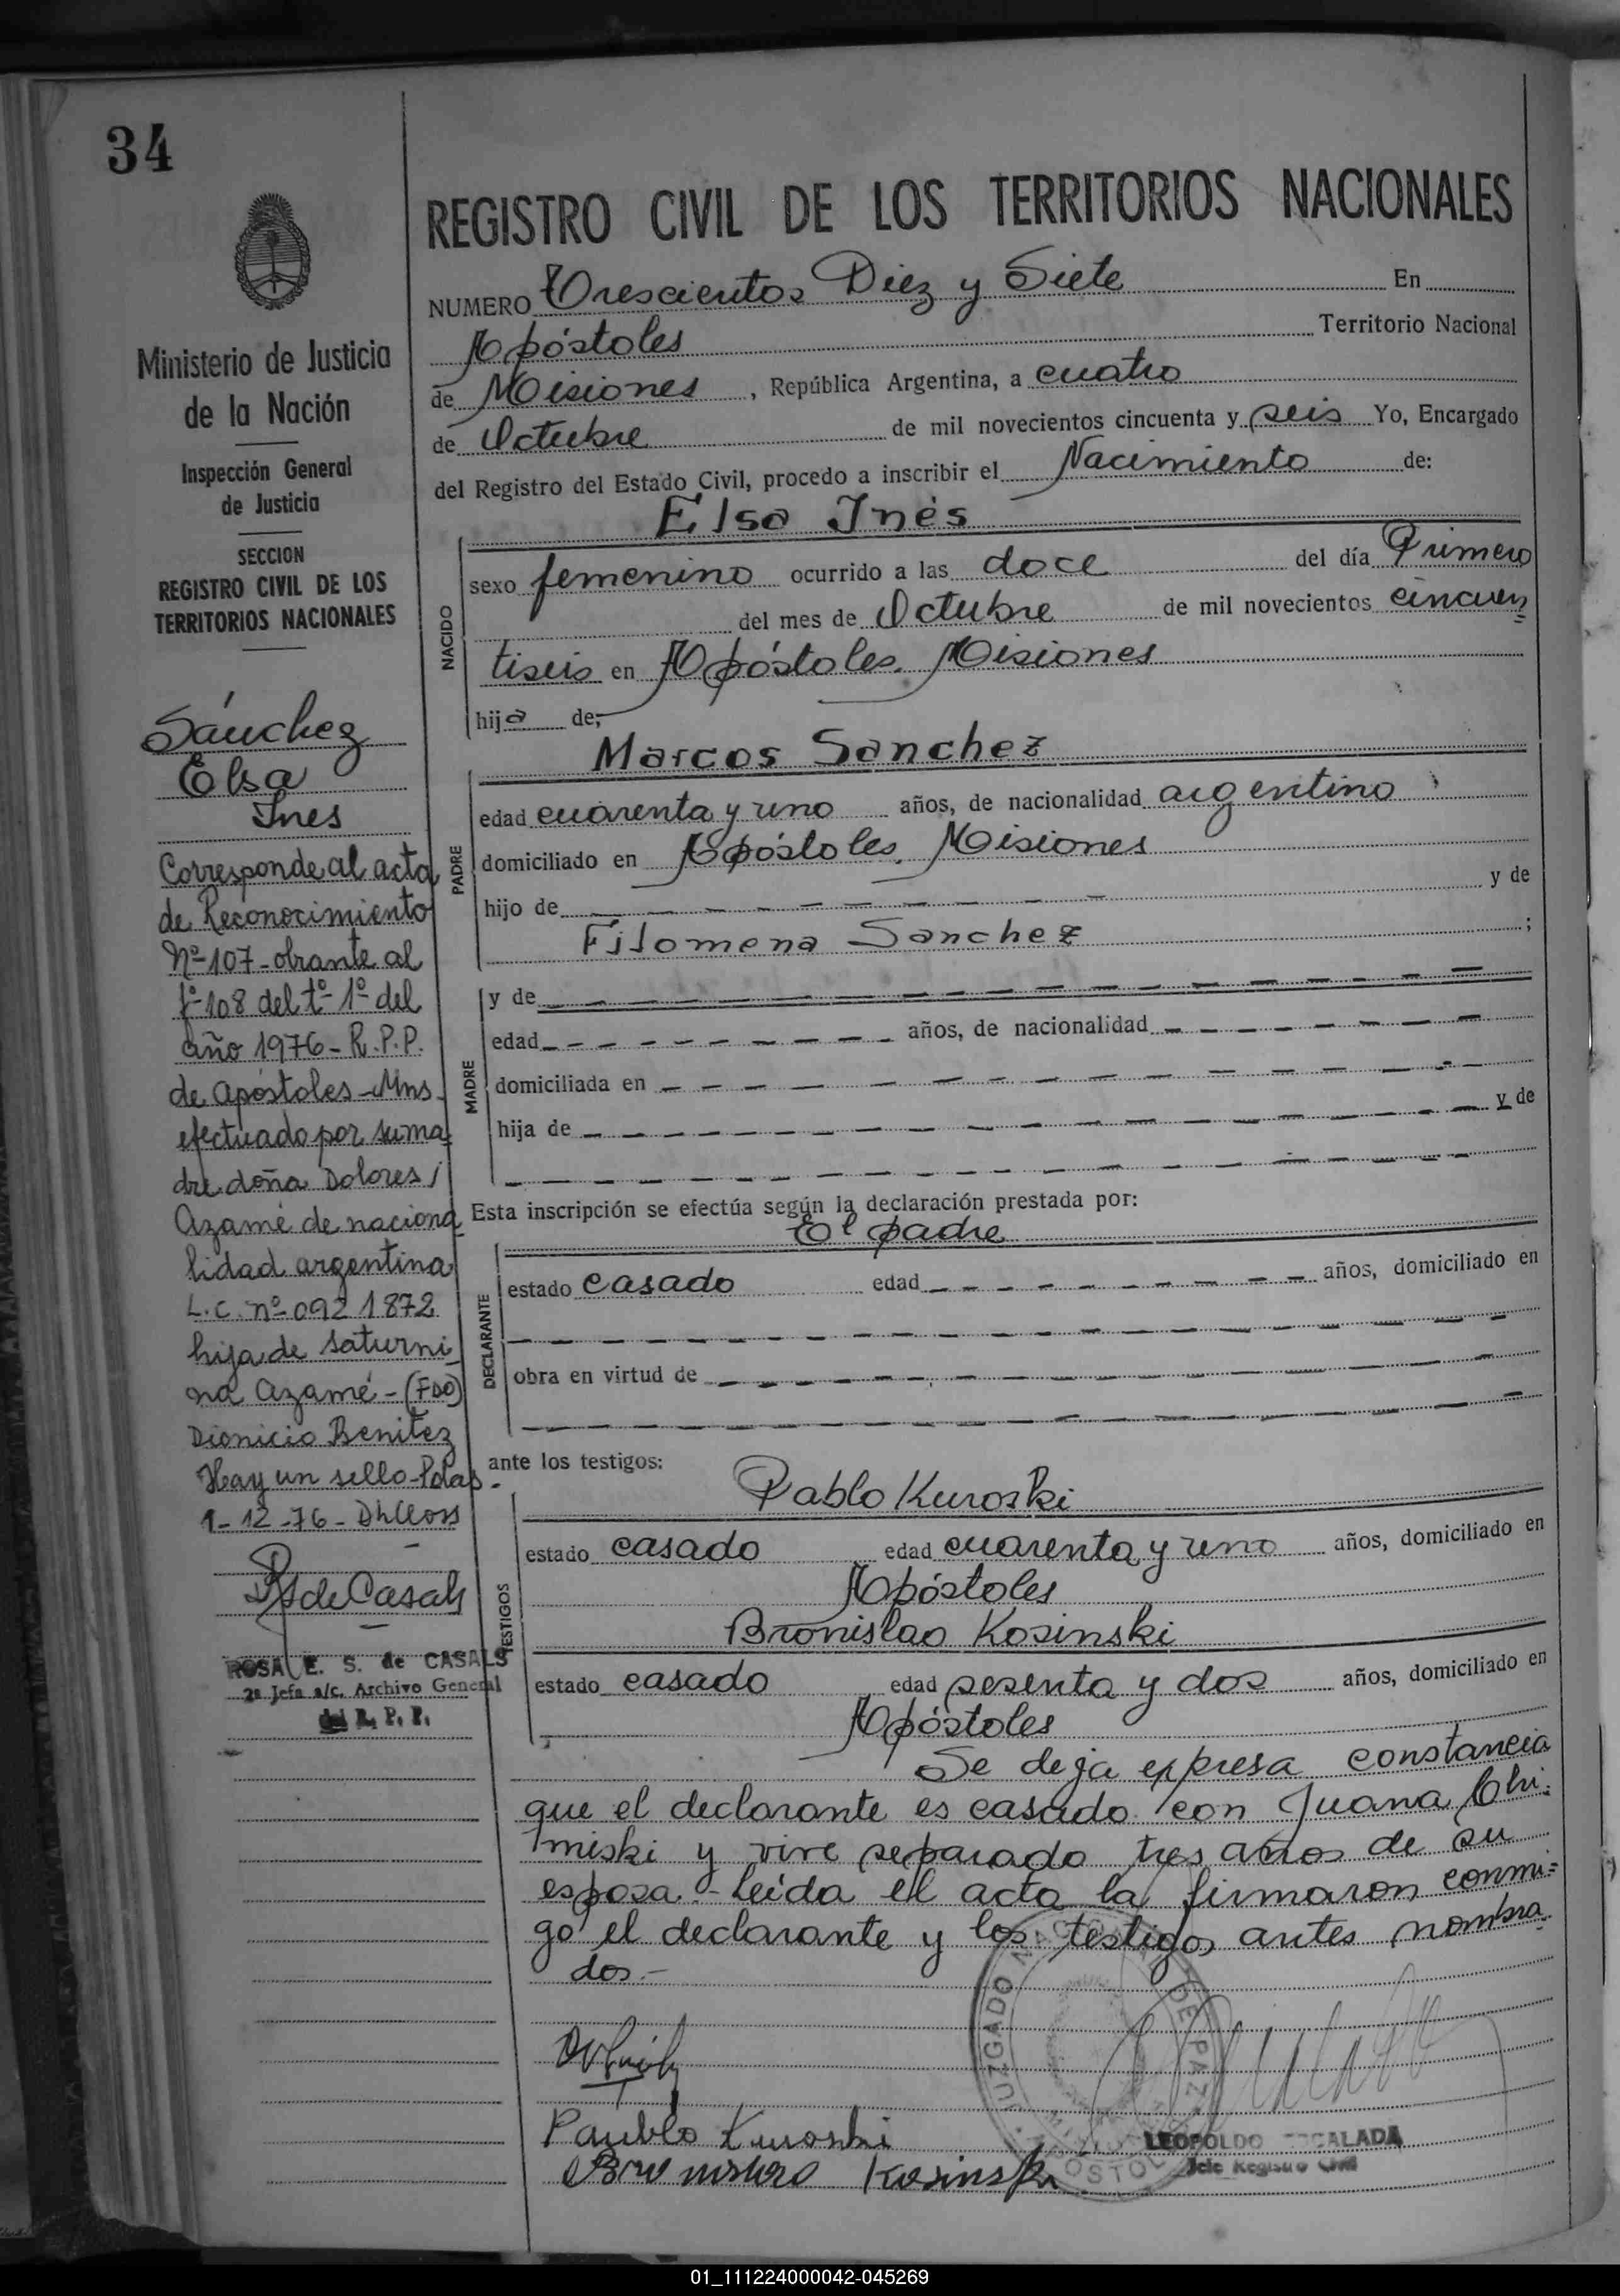 34
Ministerio de Justicia
de la Nación
Inspección General
de Justicia
SECCION
REGISTRO CIVIL DE LOS
TERRITORIOS NACIONALES
Sánchez
Elsa
Ines
Corresponde al acta
de Reconocimiento
Nº 107 - obrante al
fº 108 del tº 1º del
año 1976 - R.P.P.
de Apóstoles - Mns.
efectuado por su ma
dre doña Dolores
Azamé de naciona
lidad argentina
L.C. nº 0921872
hija de Saturni
na Azamé - (FDO)
Dionicio Benitez
Hay un sello - Pdas -
1-12-76 -
de Casals
ROSA E. S. de CASALS
2ª Jefa a/c. Archivo General
del R. P. P.
REGISTRO CIVIL DE LOS TERRITORIOS NACIONALES
NUMERO Trescientos Diez y Siete En
Apóstoles Territorio Nacional
de Misiones, República Argentina, a cuatro
de Octubre de mil novecientos cincuenta y seis Yo, Encargado
del Registro del Estado Civil, procedo a inscribir el Nacimiento de:
Elsa Inés
NACIDO
sexo femenino ocurrido a las doce del día Primero
del mes de Octubre de mil novecientos cincuen=
tiseis en Apóstoles. Misiones
hija de;
Marcos Sanchez
PADRE
edad cuarenta y uno años, de nacionalidad argentino
domiciliado en Apóstoles. Misiones
hijo de — — — — — — — — y de
Filomena Sanchez ;
MADRE
y de — — — — — — — —
edad — — — — — — — — años, de nacionalidad — — — — — —
domiciliada en — — — — — — — —
hija de — — — — — — — — y de
— — — — — — — —
Esta inscripción se efectúa según la declaración prestada por:
El padre
DECLARANTE
estado casado edad — — — — — — — — años, domiciliado en
— — — — — — — —
obra en virtud de — — — — — — — —
— — — — — — — —
ante los testigos:
Pablo Kuroski
TESTIGOS
estado casado edad cuarenta y uno años, domiciliado en
Apóstoles
Bronislao Kosinski
estado casado edad sesenta y dos años, domiciliado en
Apóstoles
Se deja expresa constancia
que el declarante es casado con Juana Chi=
miski y vive separado tres años de su
esposa - Leída el acta la firmaron conmi=
go el declarante y los testigos antes nombra=
dos.-
JUZGADO NACIONAL DE PAZ
Paublo Kuroski
Kosinski
LEOPOLDO ESCALADA
Jefe Registro Civil
01_111224000042-045269